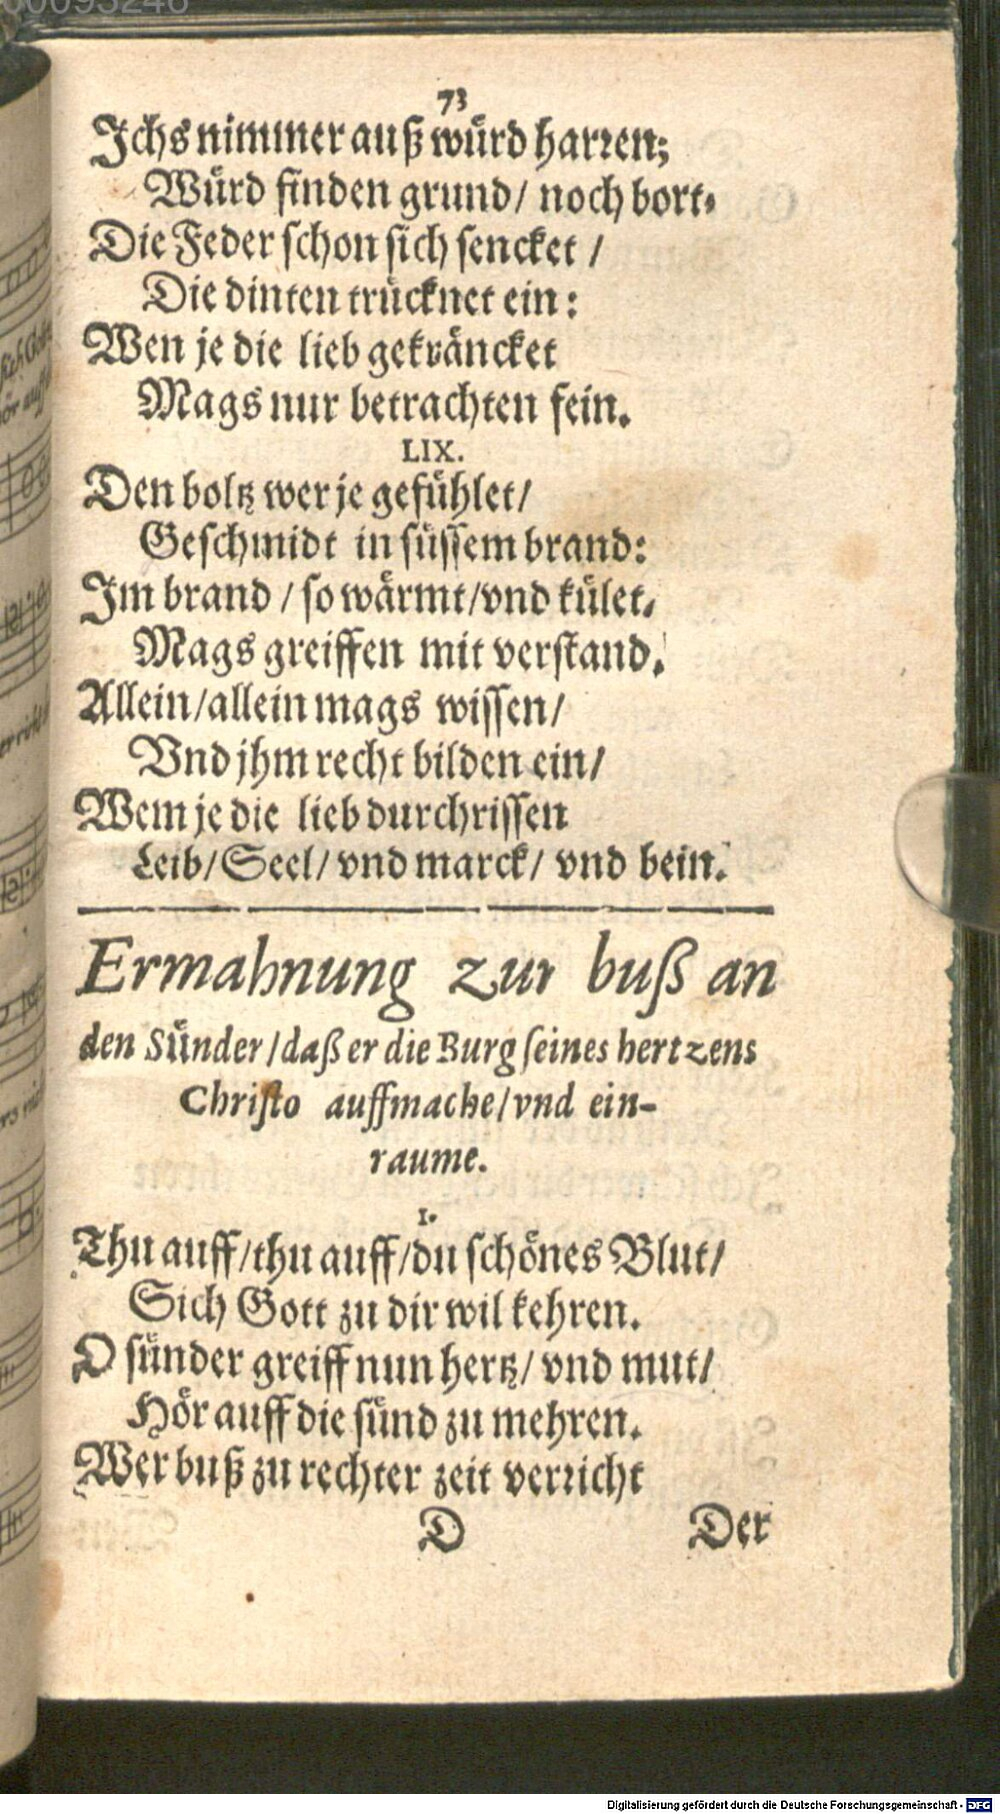 60093246
73
Ichs nimmer auß würd harren;
Würd finden grund/ noch bort.
Die Feder schon sich sencket /
Die dinten trücknet ein:
Wen je die lieb gekräncket
Mags nur betrachten fein.
LIX.
Den boltz wer je gefühlet/
Geschmidt in süssem brand:
Im brand / so wärmt/vnd kület.
Mags greiffen mit verstand.
Allein/allein mags wissen/
Vnd jhm recht bilden ein/
Wem je die lieb durchrissen
Leib/Seel/ vnd marck/ vnd bein.
Ermahnung zur buß an
den Sünder/daß er die Burg seines hertzens
Christo auffmache/vnd ein-
raume.
I.
Thu auff/thu auff/du schönes Blut/
Sich Gott zu dir wil kehren.
O sünder greiff nun hertz/ vnd mut/
Hör auff die sünd zu mehren.
Wer buß zu rechter zeit verricht
D Der
Digitalisierung gefördert durch die Deutsche Forschungsgemeinschaft - DFG